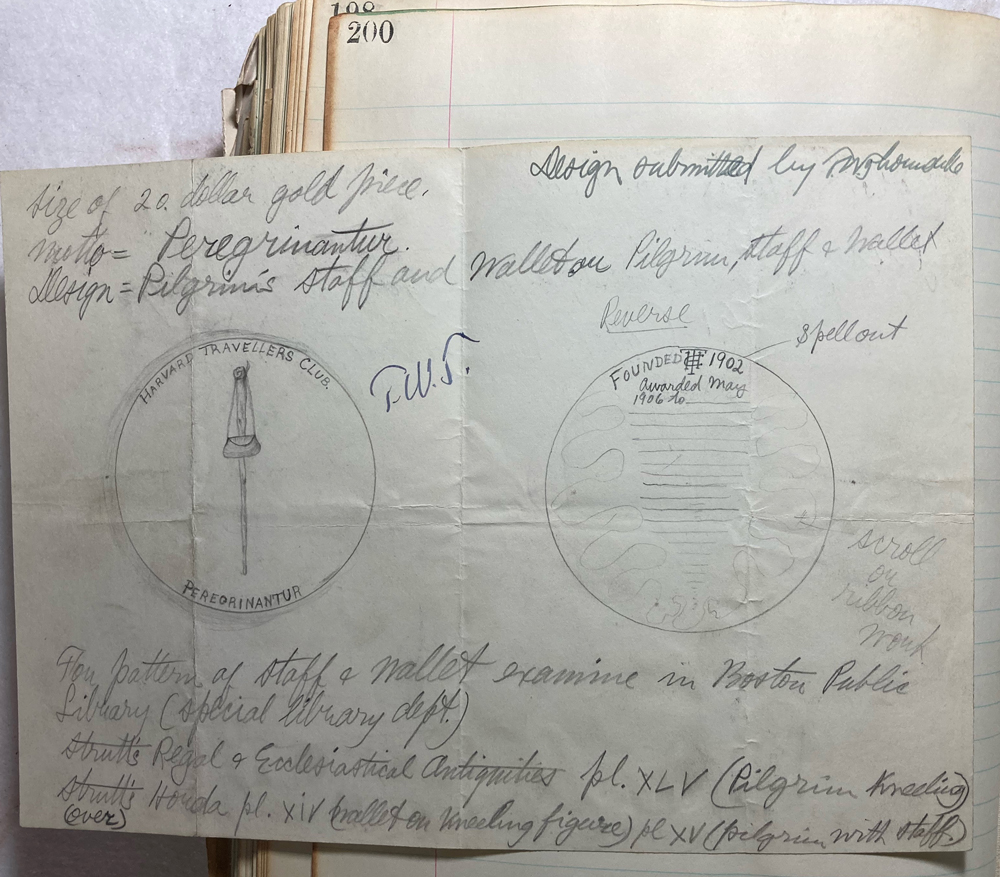 198
200
Design submitted by
Size of 20. dollar gold piece.
Motto = Peregrinantur.
Design = Pilgrim's staff and wallet or Pilgrim, staff & wallet
Reverse
Spell out
HARVARD TRAVELLERS CLUB.
PEREGRINANTUR
T.W.T.
FOUNDED HTC 1902
Awarded May
1906 to
scroll
or
ribbon
work
For pattern of staff & wallet examine in Boston Public
Library (special library dept.)
Strutt's Regal & Ecclesiastical Antiquities pl. XLV (Pilgrim kneeling)
Strutt's Horda pl. XIV (wallet on kneeling figure) pl XV (pilgrim with staff.)
(over)